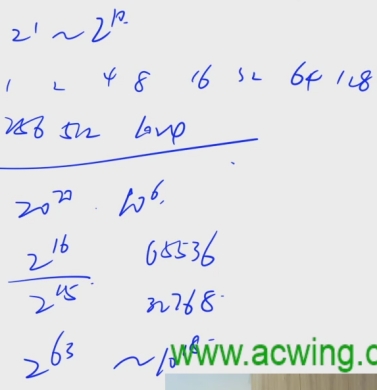 2^1 ~ 2^10
1 2 4 8 16 32 64 128
256 512
10^6
2^16 65536
2^15 32768
2^63 ~
www.acwing.c